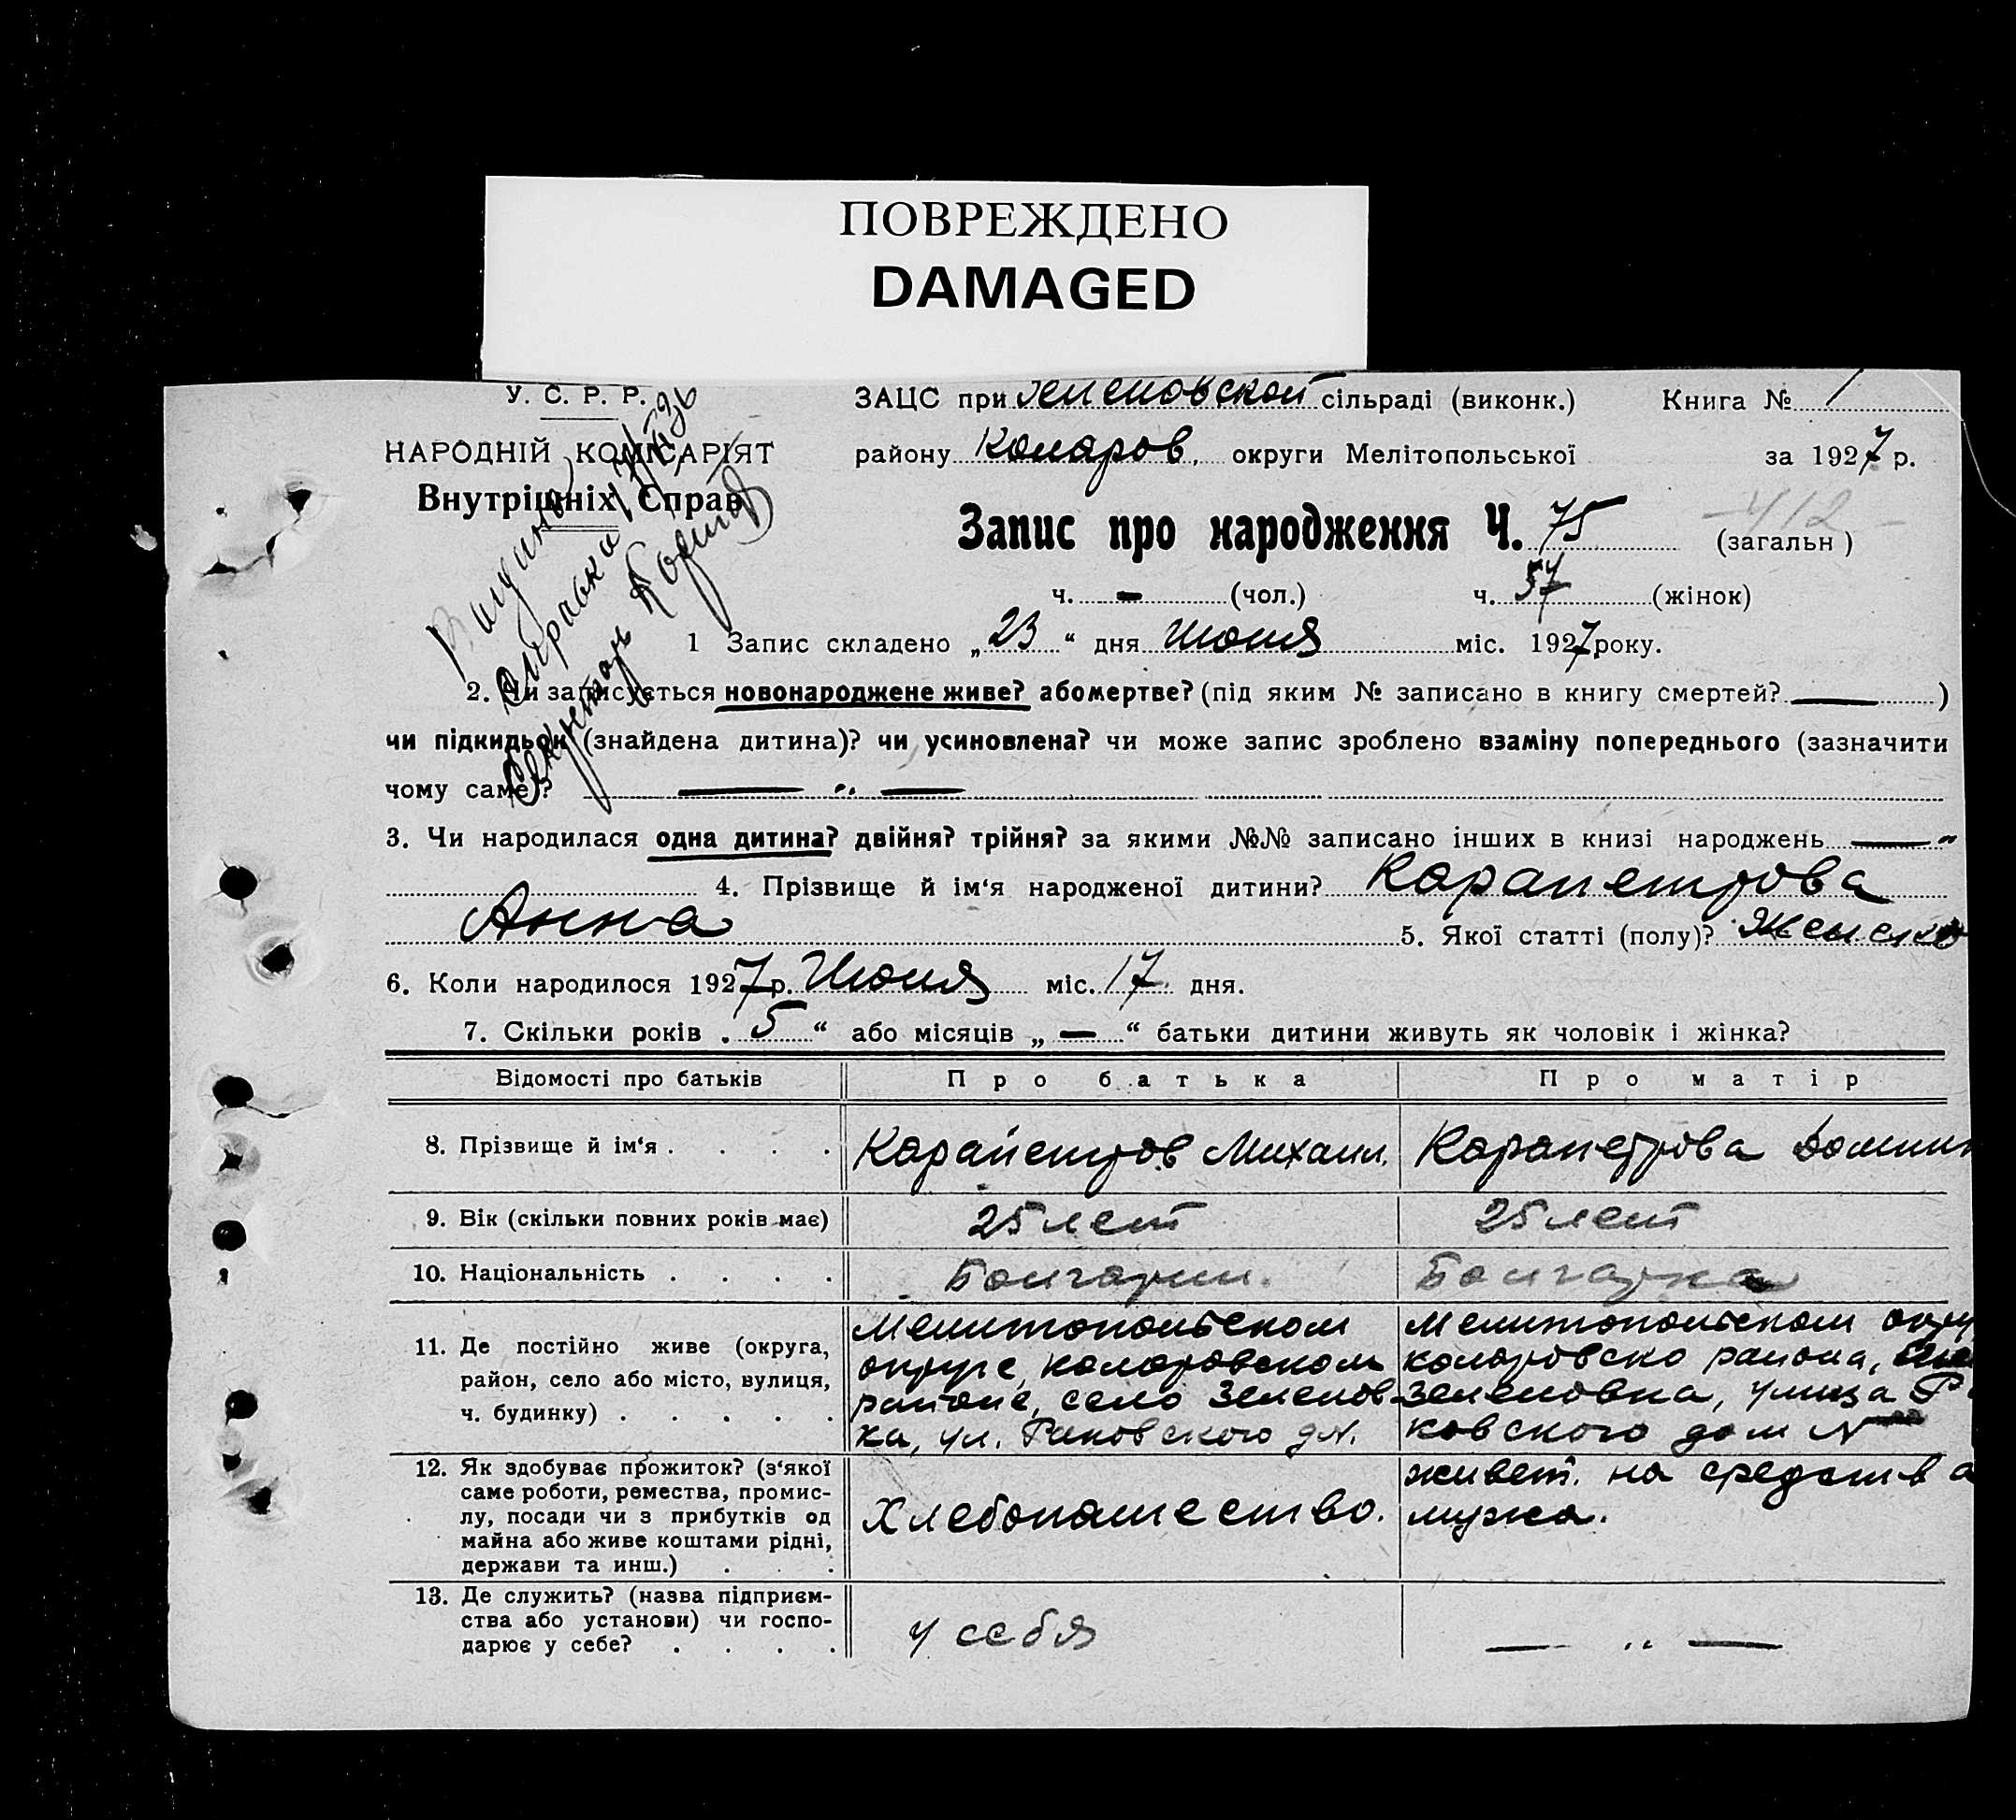 ПОВРЕЖДЕНО
DAMAGED
У. С. Р. Р.
НАРОДНІЙ КОМІСАРІЯТ
Внутрішніх Справ
Видана
справка
Секретарь
ЗАЦС при Зеленовской сільраді (виконк.) Книга № 1
району Коларов. округи Мелітопольської за 1927 р.
Запис про народження Ч. 75 (загальн)
412
ч. — (чол.) ч. 57 (жінок)
1 Запис складено „23“ дня Июня міс. 1927 року.
2. Чи записується новонароджене живе? або мертве? (під яким № записано в книгу смертей? — )
чи підкидьок (знайдена дитина)? чи усиновлена? чи може запис зроблено взаміну попереднього (зазначити
чому саме)? — „ —
3. Чи народилася одна дитина? двійня? трійня? за якими №№ записано інших в книзі народжень — „
4. Прізвище й ім‘я народженої дитини? Карапетрова
Анна 5. Якої статті (полу)? Женско
6. Коли народилося 1927 р. Июня міс. 17 дня.
7. Скільки років „5“ або місяців „—“ батьки дитини живуть як чоловік і жінка?
Відомості про батьків Про батька Про матір
8. Прізвище й ім‘я . . . . Карапетров Михаил. Карапетрова Домни
9. Вік (скільки повних років має) 25 лет 25 лет
10. Національність . . . . Болгарин. Болгарка
11. Де постійно живе (округа,
район, село або місто, вулиця,
ч. будинку) . . . . .
Мелитопольском
округе, коларовском
районе, село Зеленов-
ка, ул. Раковского д№.
Мелитопольском окру
коларовско района,
Зеленовка, улица Р
ковского дом №
12. Як здобуває прожиток? (з‘якої
саме роботи, ремества, промис-
лу, посади чи з прибутків од
майна або живе коштами рідні,
держави та инш.) . .
Хлебопашество.
живет. на средства
мужа.
13. Де служить? (назва підприєм-
ства або установи) чи госпо-
дарює у себе? . . . .
у себя
— „ —